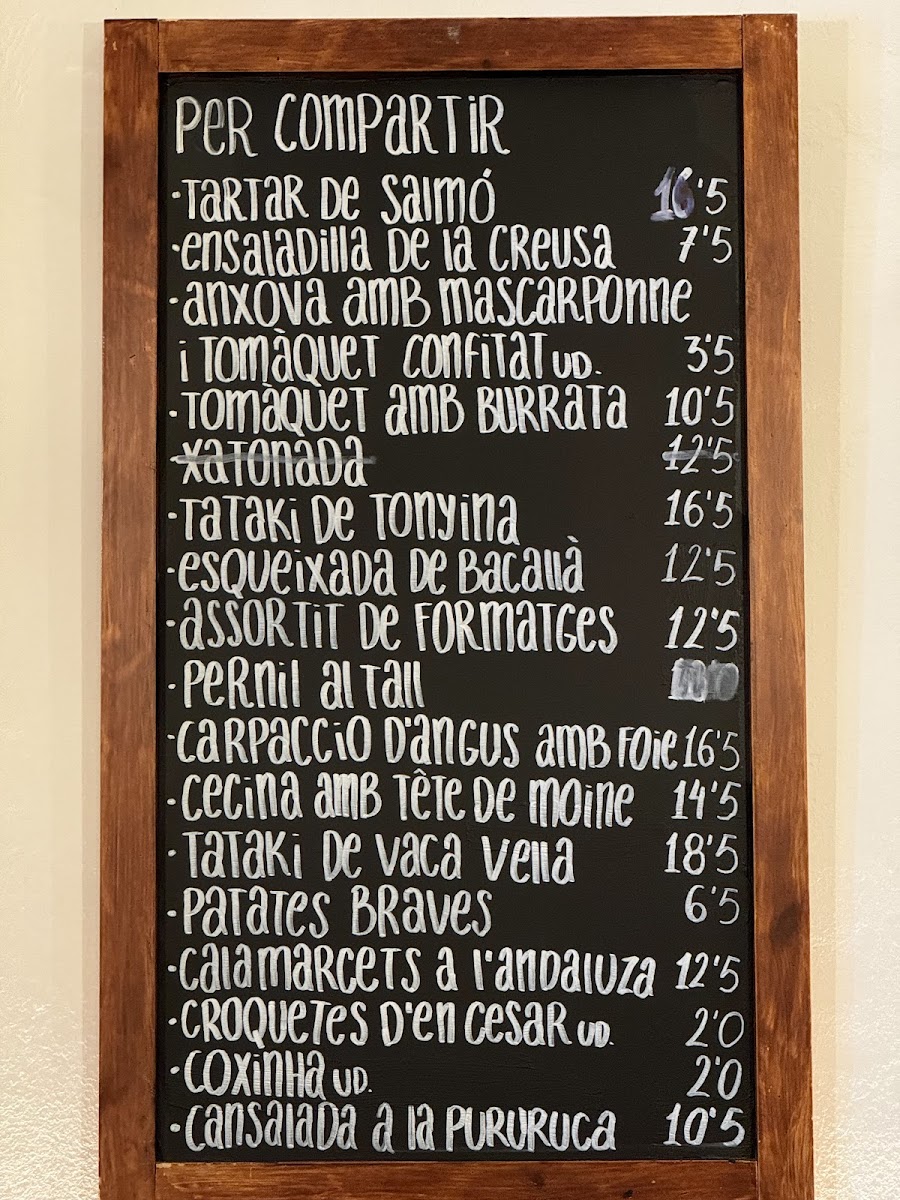 PER COMPARTIR
·TARTAR DE SALMÓ 16'5
·ENSALADILLA DE LA CREUSA 7'5
·ANXOVA AMB MASCARPONNE
I TOMÀQUET CONFITAT UD. 3'5
·TOMÀQUET AMB BURRATA 10'5
XATONADA 12'5
·TATAKI DE TONYINA 16'5
·ESQUEIXADA DE BACALLÀ 12'5
·ASSORTIT DE FORMATGES 12'5
·PERNIL AL TALL
·CARPACCIO D'ANGUS AMB FOIE 16'5
·CECINA AMB TÊTE DE MOINE 14'5
·TATAKI DE VACA VELLA 18'5
·PATATES BRAVES 6'5
·CALAMARCETS A L'ANDALUZA 12'5
·CROQUETES D'EN CESAR UD. 2'0
·COXINHA UD. 2'0
·CANSALADA A LA PURURUCA 10'5